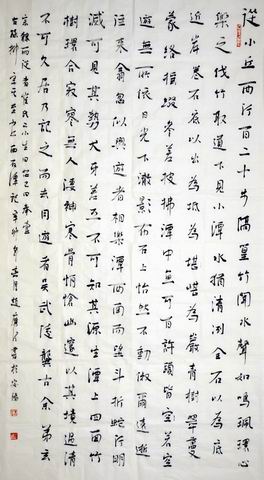 從小丘西行百二十步隔篁竹聞水聲如鳴珮環心
樂之伐竹取道下見小潭水猶清冽全石以為底
近岸卷石底以出為坻為嵁青樹翠蔓
蒙絡搖綴參差披拂潭中魚可百許頭皆若空
遊無所依日光下澈影布石上怡然不動俶爾遠逝
往來翕忽似與遊者相樂潭西南而望斗折蛇行明
滅可見其勢犬牙差互不可知其源坐潭上四面竹
樹環合寂寥無人淒神寒骨悄愴幽邃以其境過清
不可久居乃記之而去同遊者吳武陵龔古余弟玄
宗隸而從者崔氏二小生曰恕己曰奉壹
右柳宗元至小丘西石潭記辛卯年月趙書於